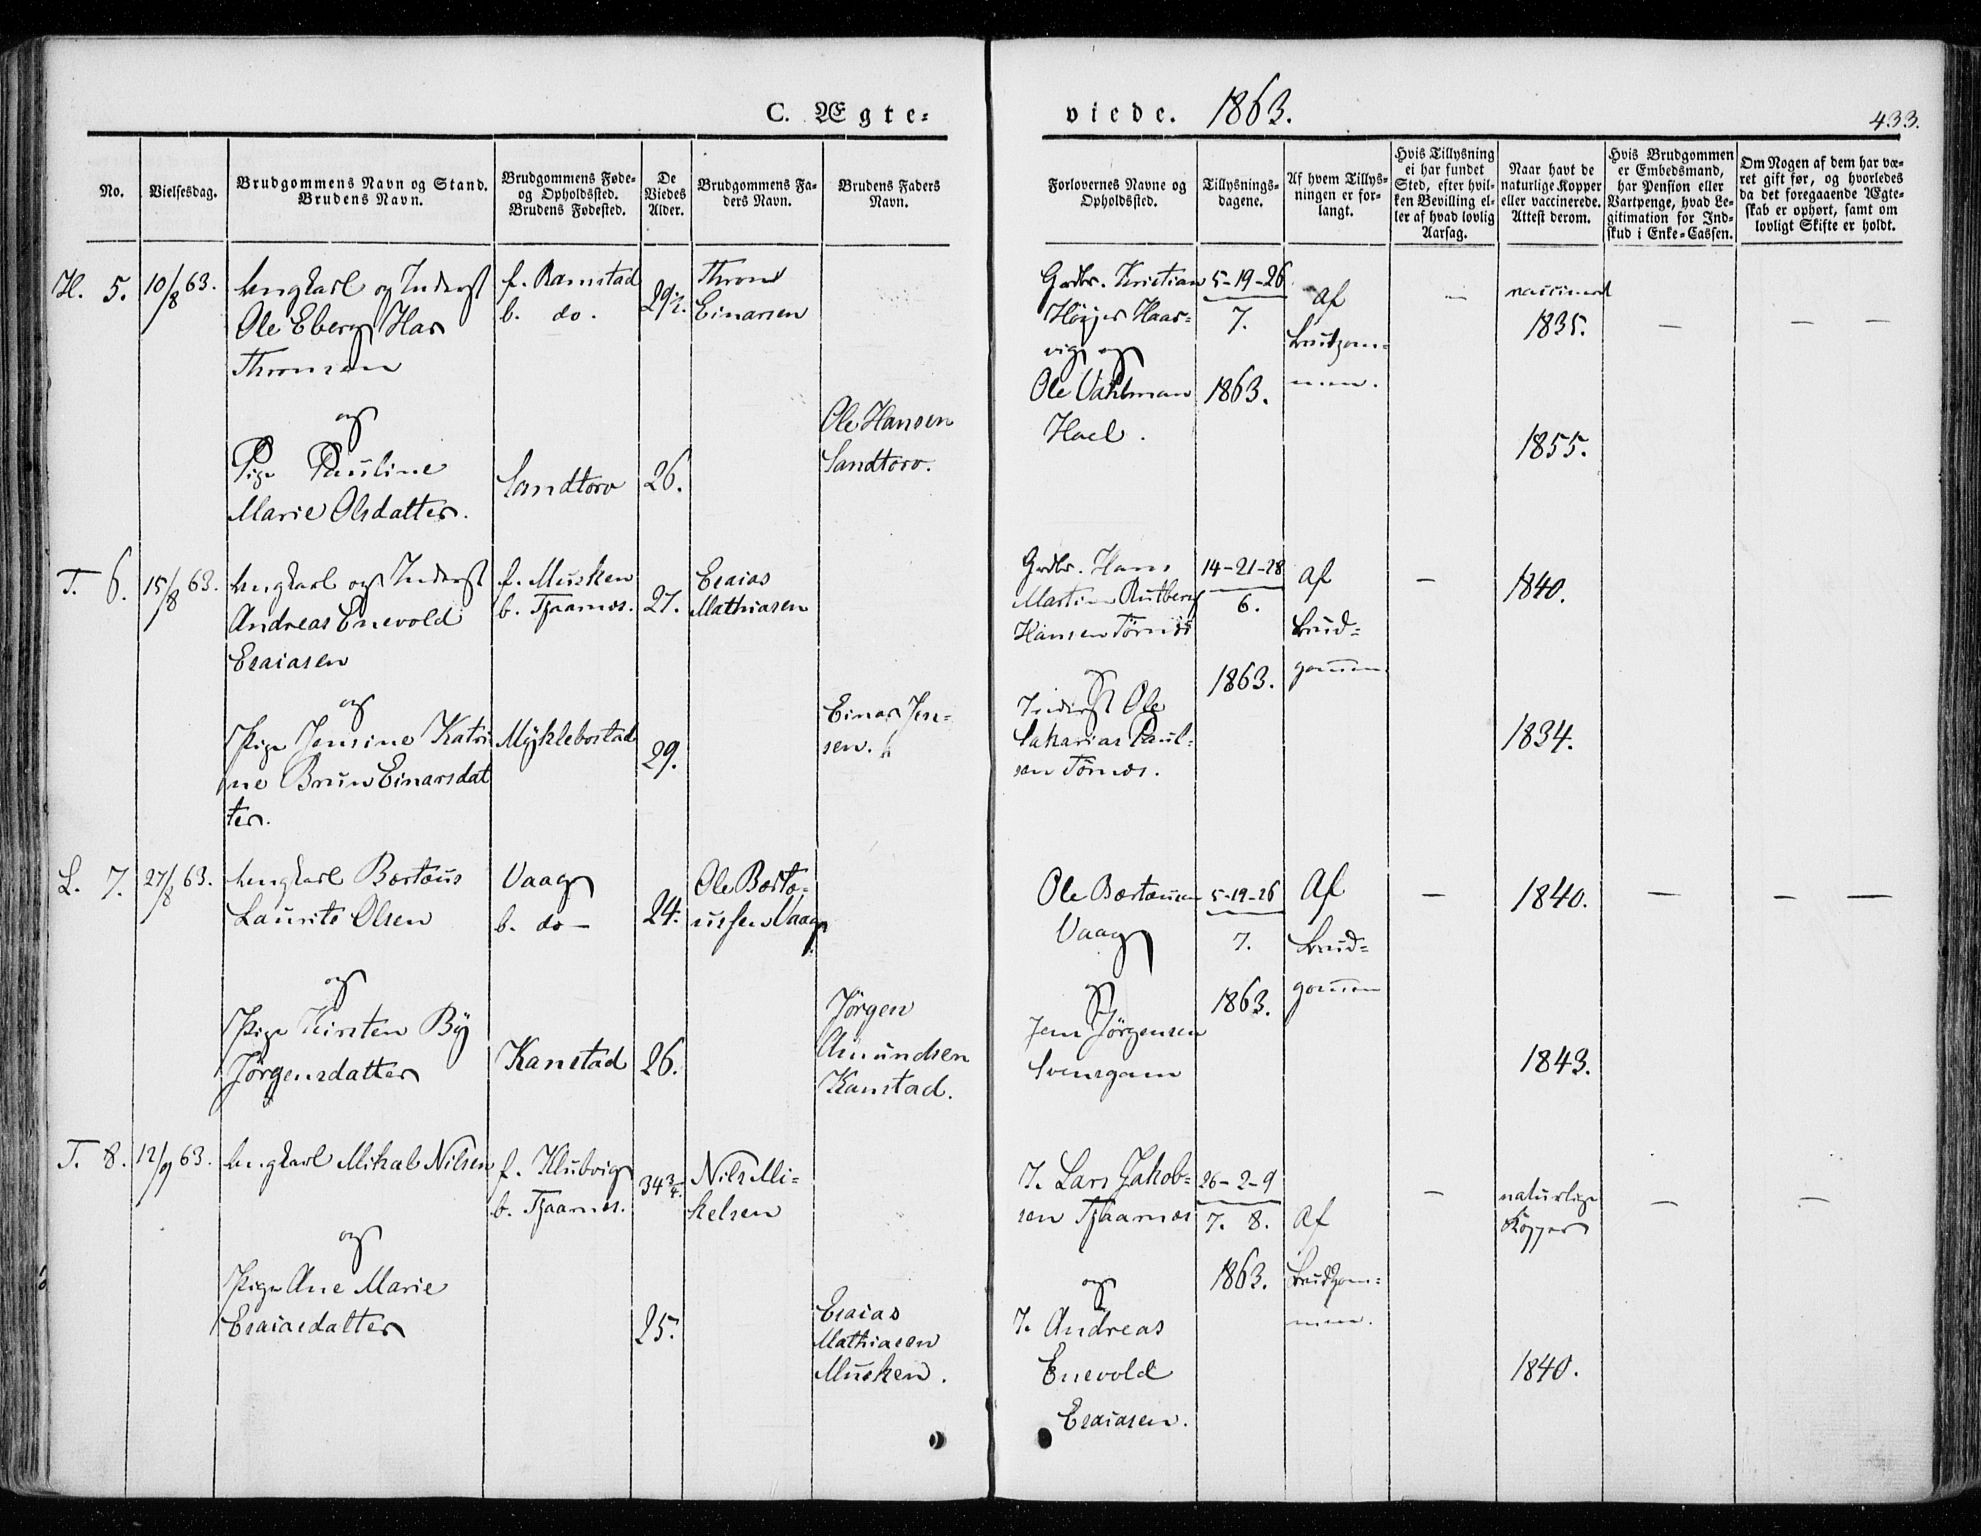 C. Ægte=
viede. 1863.
433.
No.
Vielsesdag.
Brudgommens Navn og Stand.
Brudens Navn.
Brudgommens Føde-
og Opholdssted.
Brudens Fødested.
De
Viedes
Alder.
Brudgommens Fa-
ders Navn.
Brudens Faders
Navn.
Forlovernes Navne og
Opholdssted.
Tillysnings-
dagene.
Af hvem Tillys-
ningen er for-
langt.
Hvis Tillysning
ei har fundet
Sted, efter hvil-
ken Bevilling el-
ler af hvad lovlig
Aarsag.
Naar havt de
naturlige Kopper
eller vaccinerede.
Attest derom.
Hvis Brudgommen
er Embedsmand,
har Pension eller
Vartpenge, hvad Le-
gitimation for Ind-
skud i Enke-Cassen.
Om Nogen af dem har væ-
ret gift før, og hvorledes
da det foregaaende Ægte-
skab er ophørt, samt om
lovligt Skifte er holdt.
H. 5.
10/8 63.
Ungkarl og Inderst
Ole Eberg Har
Thronsen
og
Pige Pauline
Marie Olsdatter.
f. Ramstad
b. do.
Sandtorv
29½.
26.
Thron
Einarsen
Ole Hansen
Sandtorv.
Grdbr. Kristian
Høyer Haar-
vig og
Ole Vahlman
Hoel.
5-19-26
7.
1863.
Af
Brudgom-
men.
—
vaccineret
1835.
1855.
— — —
T. 6.
15/8 63.
Ungkarl og Inderst
Andreas Enevold
Esaiasen
og
Pige Jensine Katri
ne Brun Einarsdat
ter.
f. Musken
b. Tjaarnes.
Myklebostad
27.
29.
Esaias
Mathiasen
Einar Jen-
sen.
Grdbr. Hans
Martin Rutberg
Hansen Tørnes
og
Inderst Ole
Sakarias Paul-
sen Tørnes.
14-21-28
6.
1863.
Af
Brud-
gommen
—
1840.
1834.
L. 7.
27/8 63.
Ungkarl Bertæus
Laurits Olsen
og
Pige Kirsten By
Jørgensdatter
Vaag
b. do —
Kanstad
24.
26.
Ole Berte-
ussen Vaag
Jørgen
Amundsen
Kanstad.
Ole Bertæusen
Vaag
og
Jens Jørgensen
Svensgam
5-19-26
7.
1863.
Af
Brud-
gommen
—
1840.
1843.
— — —
T. 8.
12/9 63.
Ungkarl Mikal Nilsen
og
Pige Ane Marie
Esaiasdatter
f. Klubvig
b. Tjaarnes.
34¾.
25.
Nils Mi-
kelsen
Esaias
Mathiasen
Musken.
I. Lars Jakob-
sen Tjaarnes
og
I. Andreas
Enevold
Esaiasen.
26-2-9
7. 8.
1863.
Af
Brudgom-
men.
—
naturlige
Kopper
1840.
— —